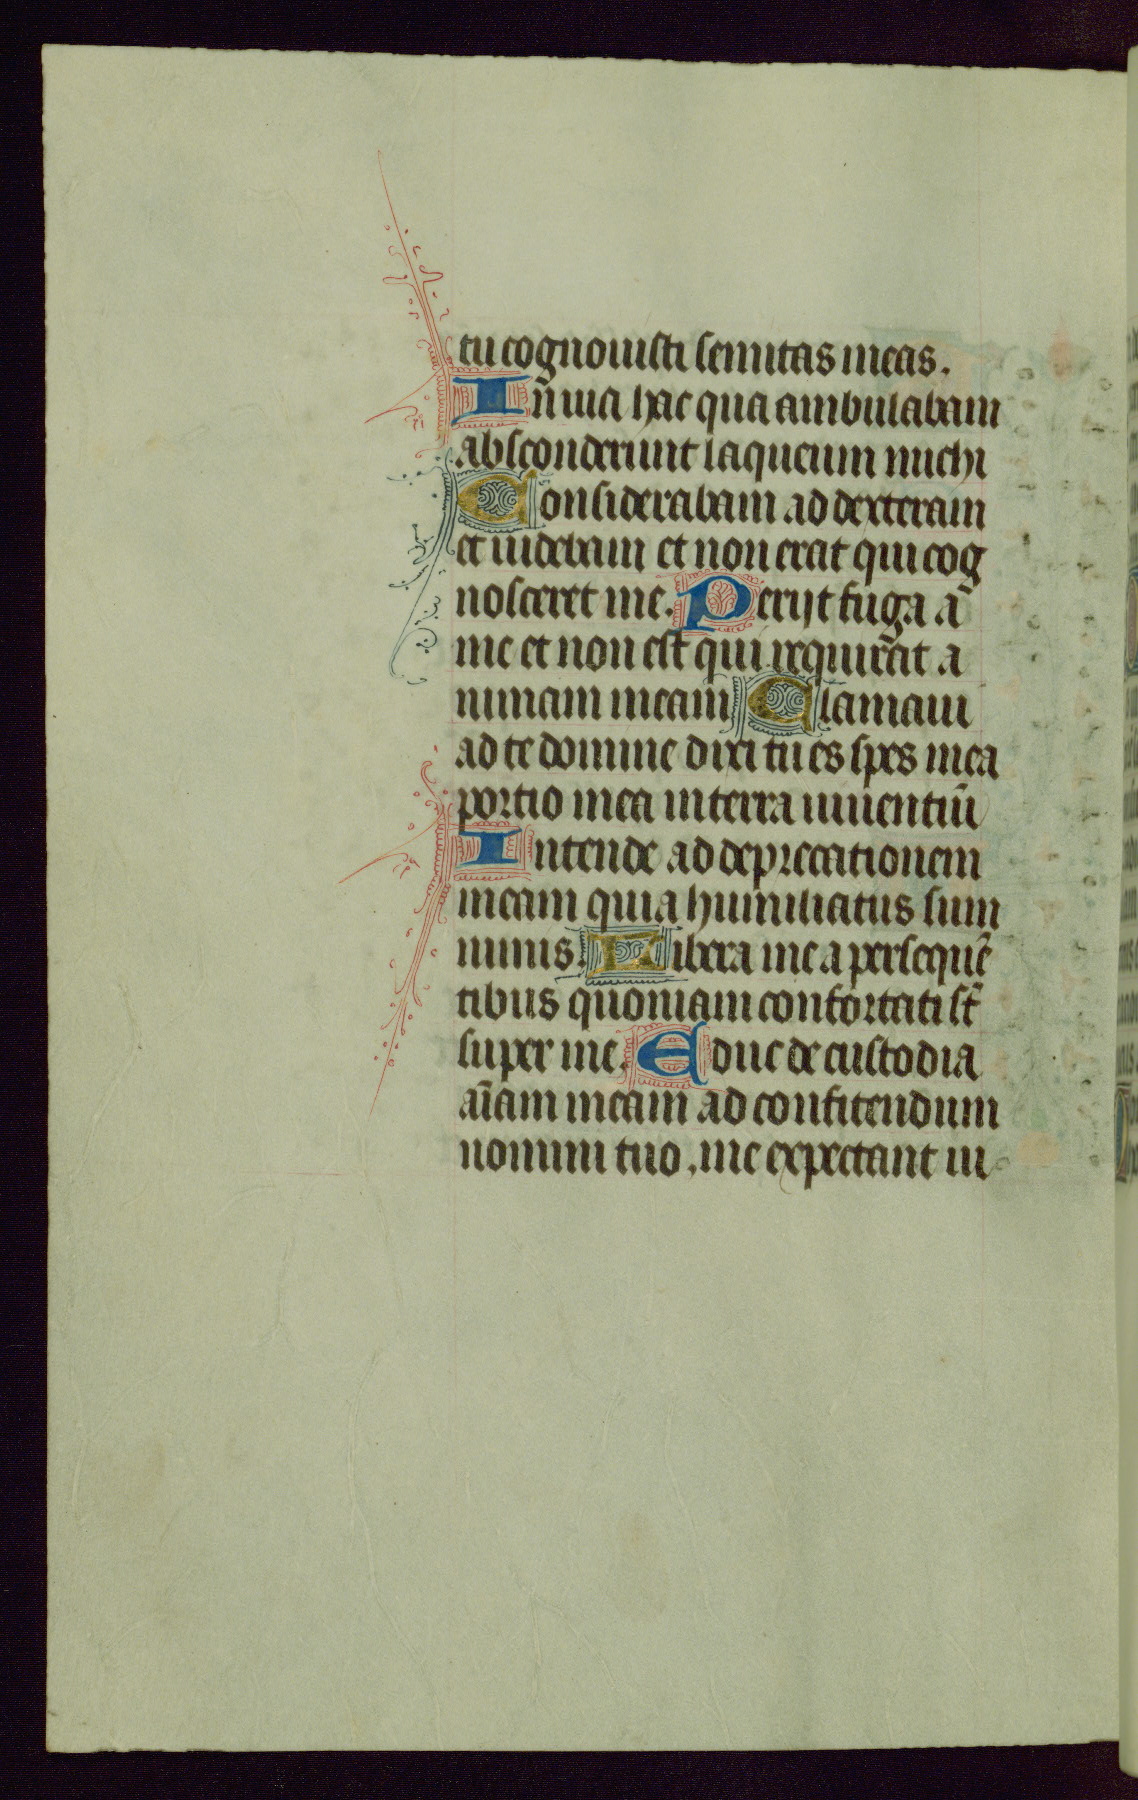 tu cognouisti semitas meas.
In̄ uia hac qua ambulabam
absconderunt laqueum michi
Considerabam ad dexteram
et uidebam et non erat qui cog
nosceret me. Perijt fuga a
me et non est qui requir̄at a
nimam meam Clamaui
ad te domine dixi tu es spes mea
portio mea in terra uiuentiū
Intende ad deprecationem
meam quia humiliatus sum
nimis. Libera me a persequē
tibus quoniam confortati st̄
super me. Educ de custodia
aīam meam ad confitendum
nomini tuo. me expectant iu